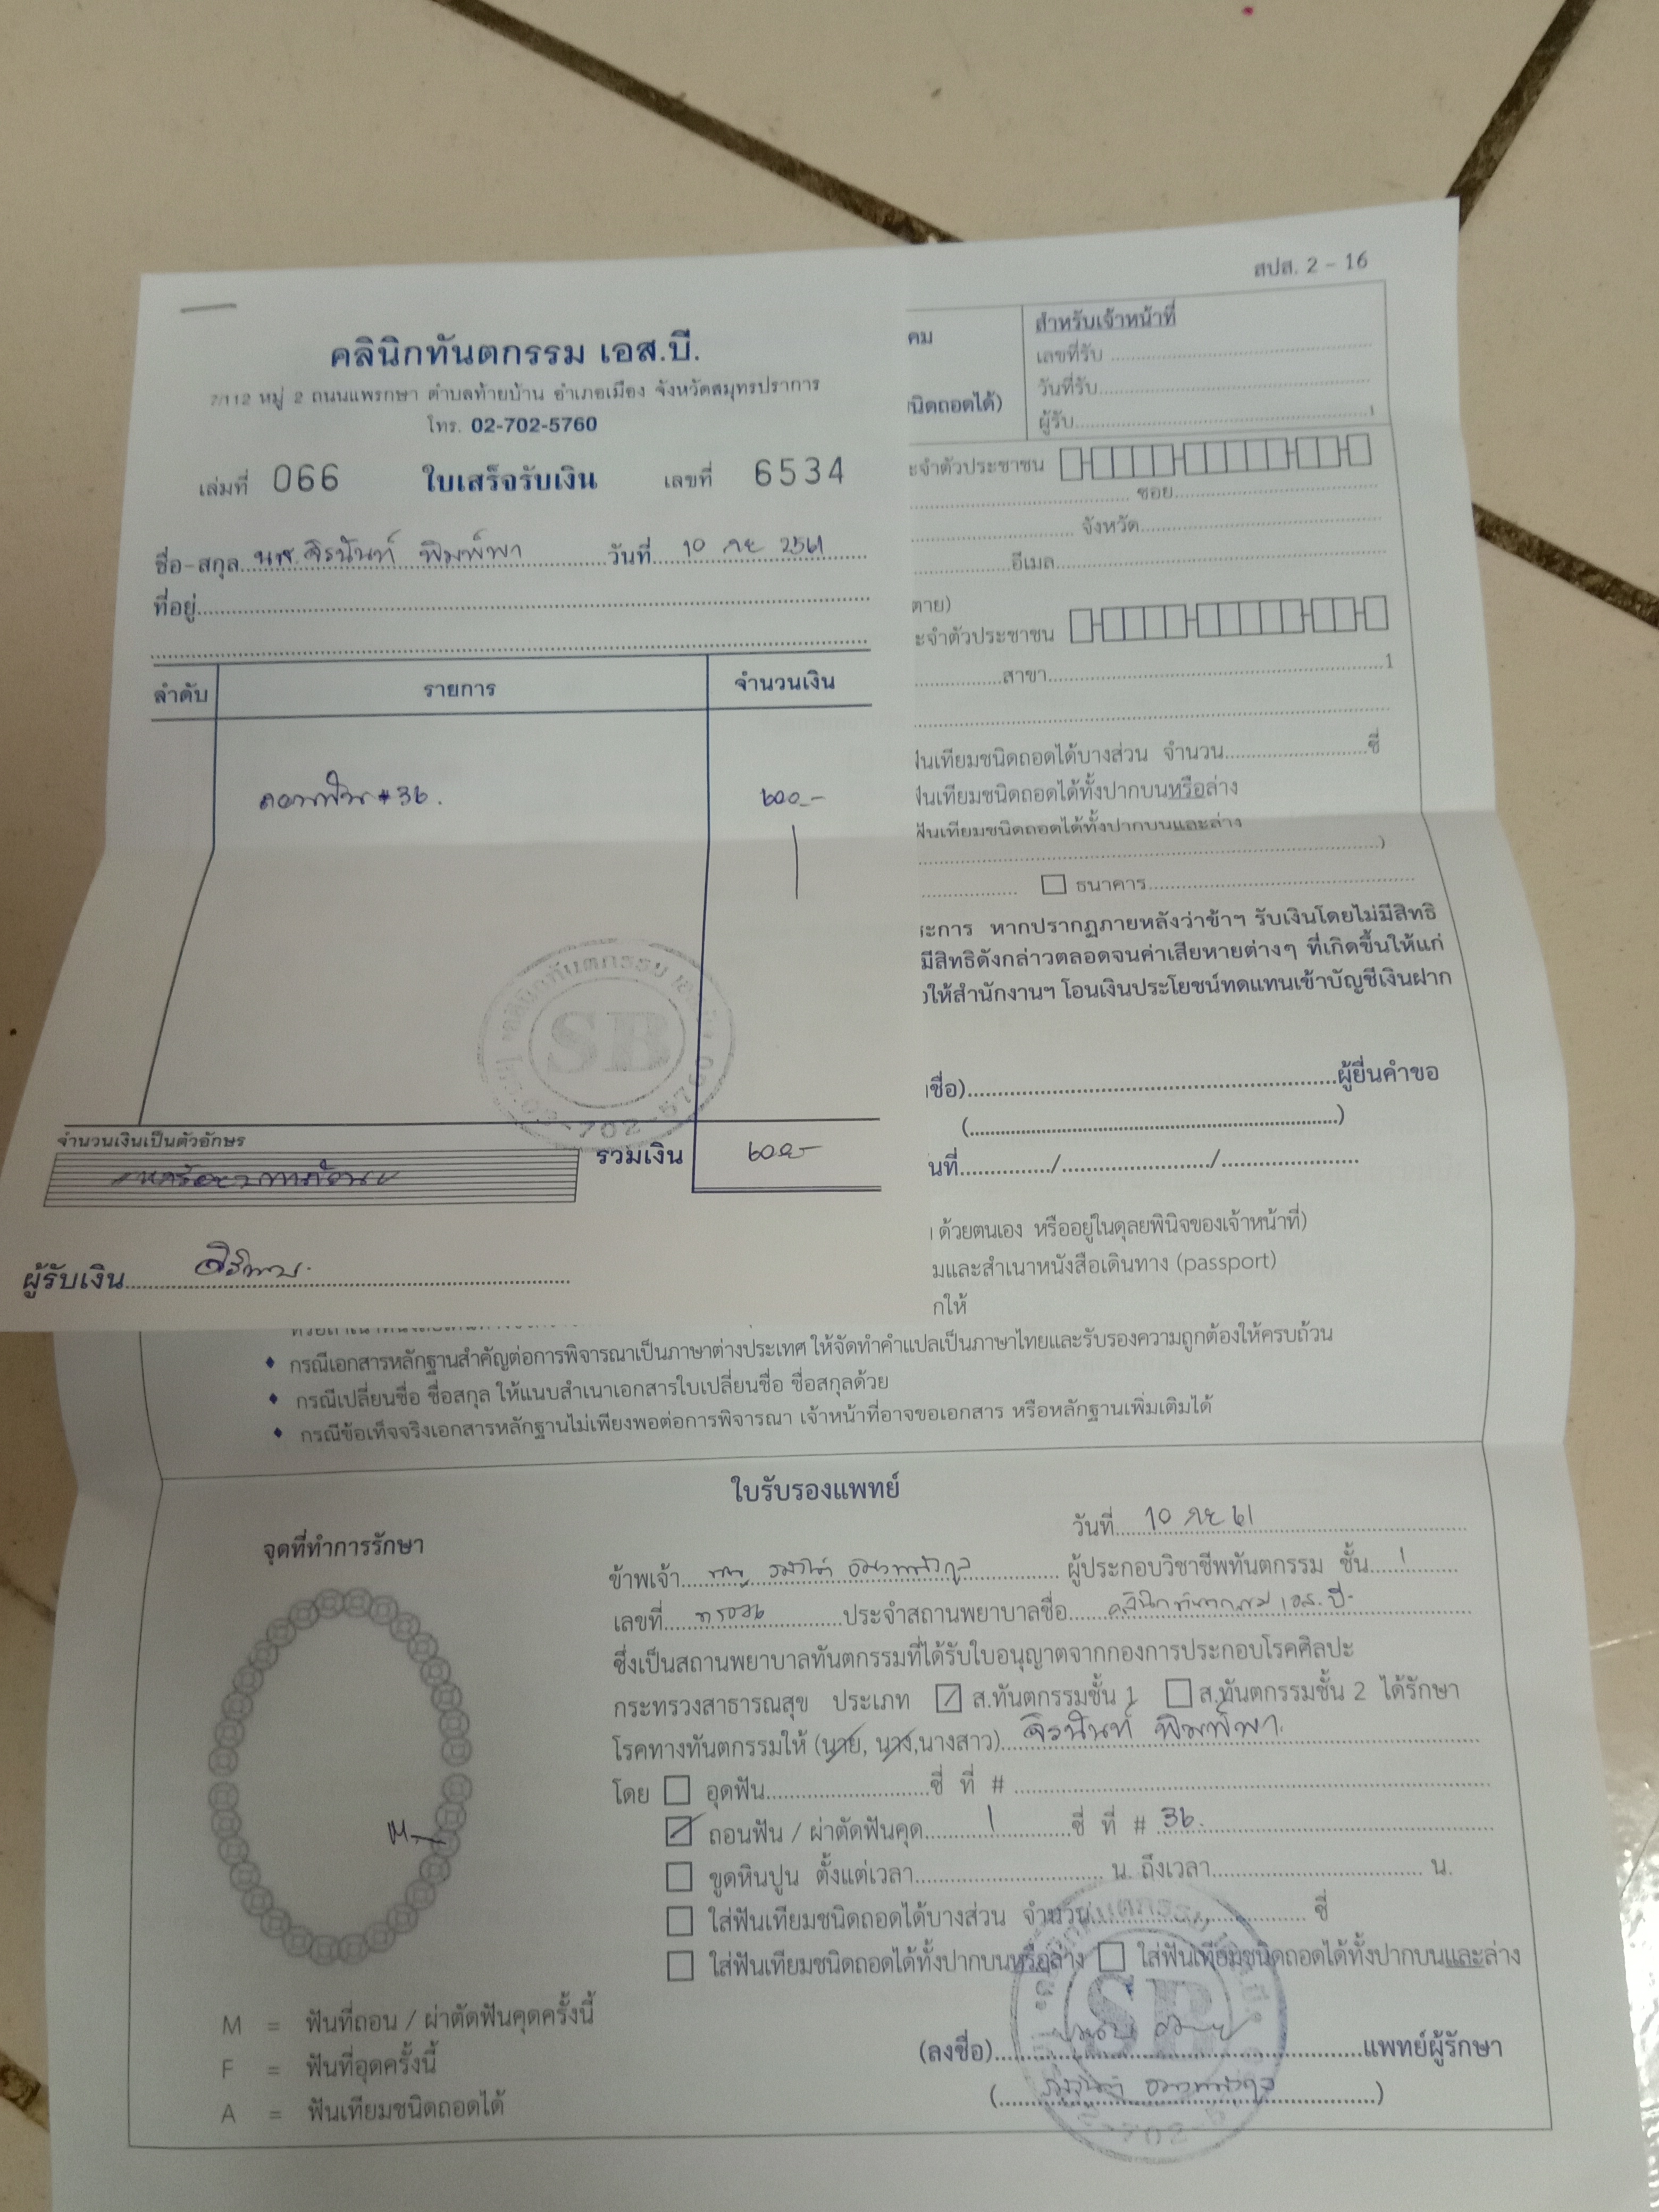 สปส. 2 - 16
คลินิกทันตกรรม เอส.บี.
7/112 หมู่ 2 ถนนแพรกษา ตำบลท้ายบ้าน อำเภอเมือง จังหวัดสมุทรปราการ
โทร. 02-702-5760
เล่มที่ 066 ใบเสร็จรับเงิน เลขที่ 6534
ชื่อ-สกุล นส.จิรนันท์ พิมพ์พา วันที่ 10 กย 2561
ที่อยู่
ลำดับ รายการ จำนวนเงิน
ถอนฟัน #36. 600.-
SB
จำนวนเงินเป็นตัวอักษร
รวมเงิน 600.-
ผู้รับเงิน
คม
สำหรับเจ้าหน้าที่
เลขที่รับ
วันที่รับ
นิดถอดได้)
ผู้รับ
ะจำตัวประชาชน
ซอย
จังหวัด
อีเมล
ตาย)
ะจำตัวประชาชน
สาขา
ฟันเทียมชนิดถอดได้บางส่วน จำนวน ซี่
ฟันเทียมชนิดถอดได้ทั้งปากบนหรือล่าง
ฟันเทียมชนิดถอดได้ทั้งปากบนและล่าง
)
ธนาคาร
ะการ หากปรากฏภายหลังว่าข้าฯ รับเงินโดยไม่มีสิทธิ
มีสิทธิดังกล่าวตลอดจนค่าเสียหายต่างๆ ที่เกิดขึ้นให้แก่
ให้สำนักงานฯ โอนเงินประโยชน์ทดแทนเข้าบัญชีเงินฝาก
ชื่อ) ผู้ยื่นคำขอ
( )
นที่ / /
ด้วยตนเอง หรืออยู่ในดุลยพินิจของเจ้าหน้าที่)
มและสำเนาหนังสือเดินทาง (passport)
กให้
♦ กรณีเอกสารหลักฐานสำคัญต่อการพิจารณาเป็นภาษาต่างประเทศ ให้จัดทำคำแปลเป็นภาษาไทยและรับรองความถูกต้องให้ครบถ้วน
♦ กรณีเปลี่ยนชื่อ ชื่อสกุล ให้แนบสำเนาเอกสารใบเปลี่ยนชื่อ ชื่อสกุลด้วย
♦ กรณีข้อเท็จจริงเอกสารหลักฐานไม่เพียงพอต่อการพิจารณา เจ้าหน้าที่อาจขอเอกสาร หรือหลักฐานเพิ่มเติมได้
ใบรับรองแพทย์
วันที่ 10 กย 61
จุดที่ทำการรักษา
ข้าพเจ้า ผู้ประกอบวิชาชีพทันตกรรม ชั้น 1
เลขที่ ประจำสถานพยาบาลชื่อ คลินิกทันตกรรม เอส.บี.
ซึ่งเป็นสถานพยาบาลทันตกรรมที่ได้รับใบอนุญาตจากกองการประกอบโรคศิลปะ
กระทรวงสาธารณสุข ประเภท ส.ทันตกรรมชั้น 1 ส.ทันตกรรมชั้น 2 ได้รักษา
โรคทางทันตกรรมให้ (นาย, นาง,นางสาว) จิรนันท์ พิมพ์พา
โดย อุดฟัน ซี่ ที่ #
ถอนฟัน / ผ่าตัดฟันคุด 1 ซี่ ที่ # 36.
M
ขูดหินปูน ตั้งแต่เวลา น. ถึงเวลา น.
ใส่ฟันเทียมชนิดถอดได้บางส่วน จำนวน ซี่
ใส่ฟันเทียมชนิดถอดได้ทั้งปากบนหรือล่าง ใส่ฟันเทียมชนิดถอดได้ทั้งปากบนและล่าง
M = ฟันที่ถอน / ผ่าตัดฟันคุดครั้งนี้
F = ฟันที่อุดครั้งนี้
A = ฟันเทียมชนิดถอดได้
SB
(ลงชื่อ) แพทย์ผู้รักษา
( )